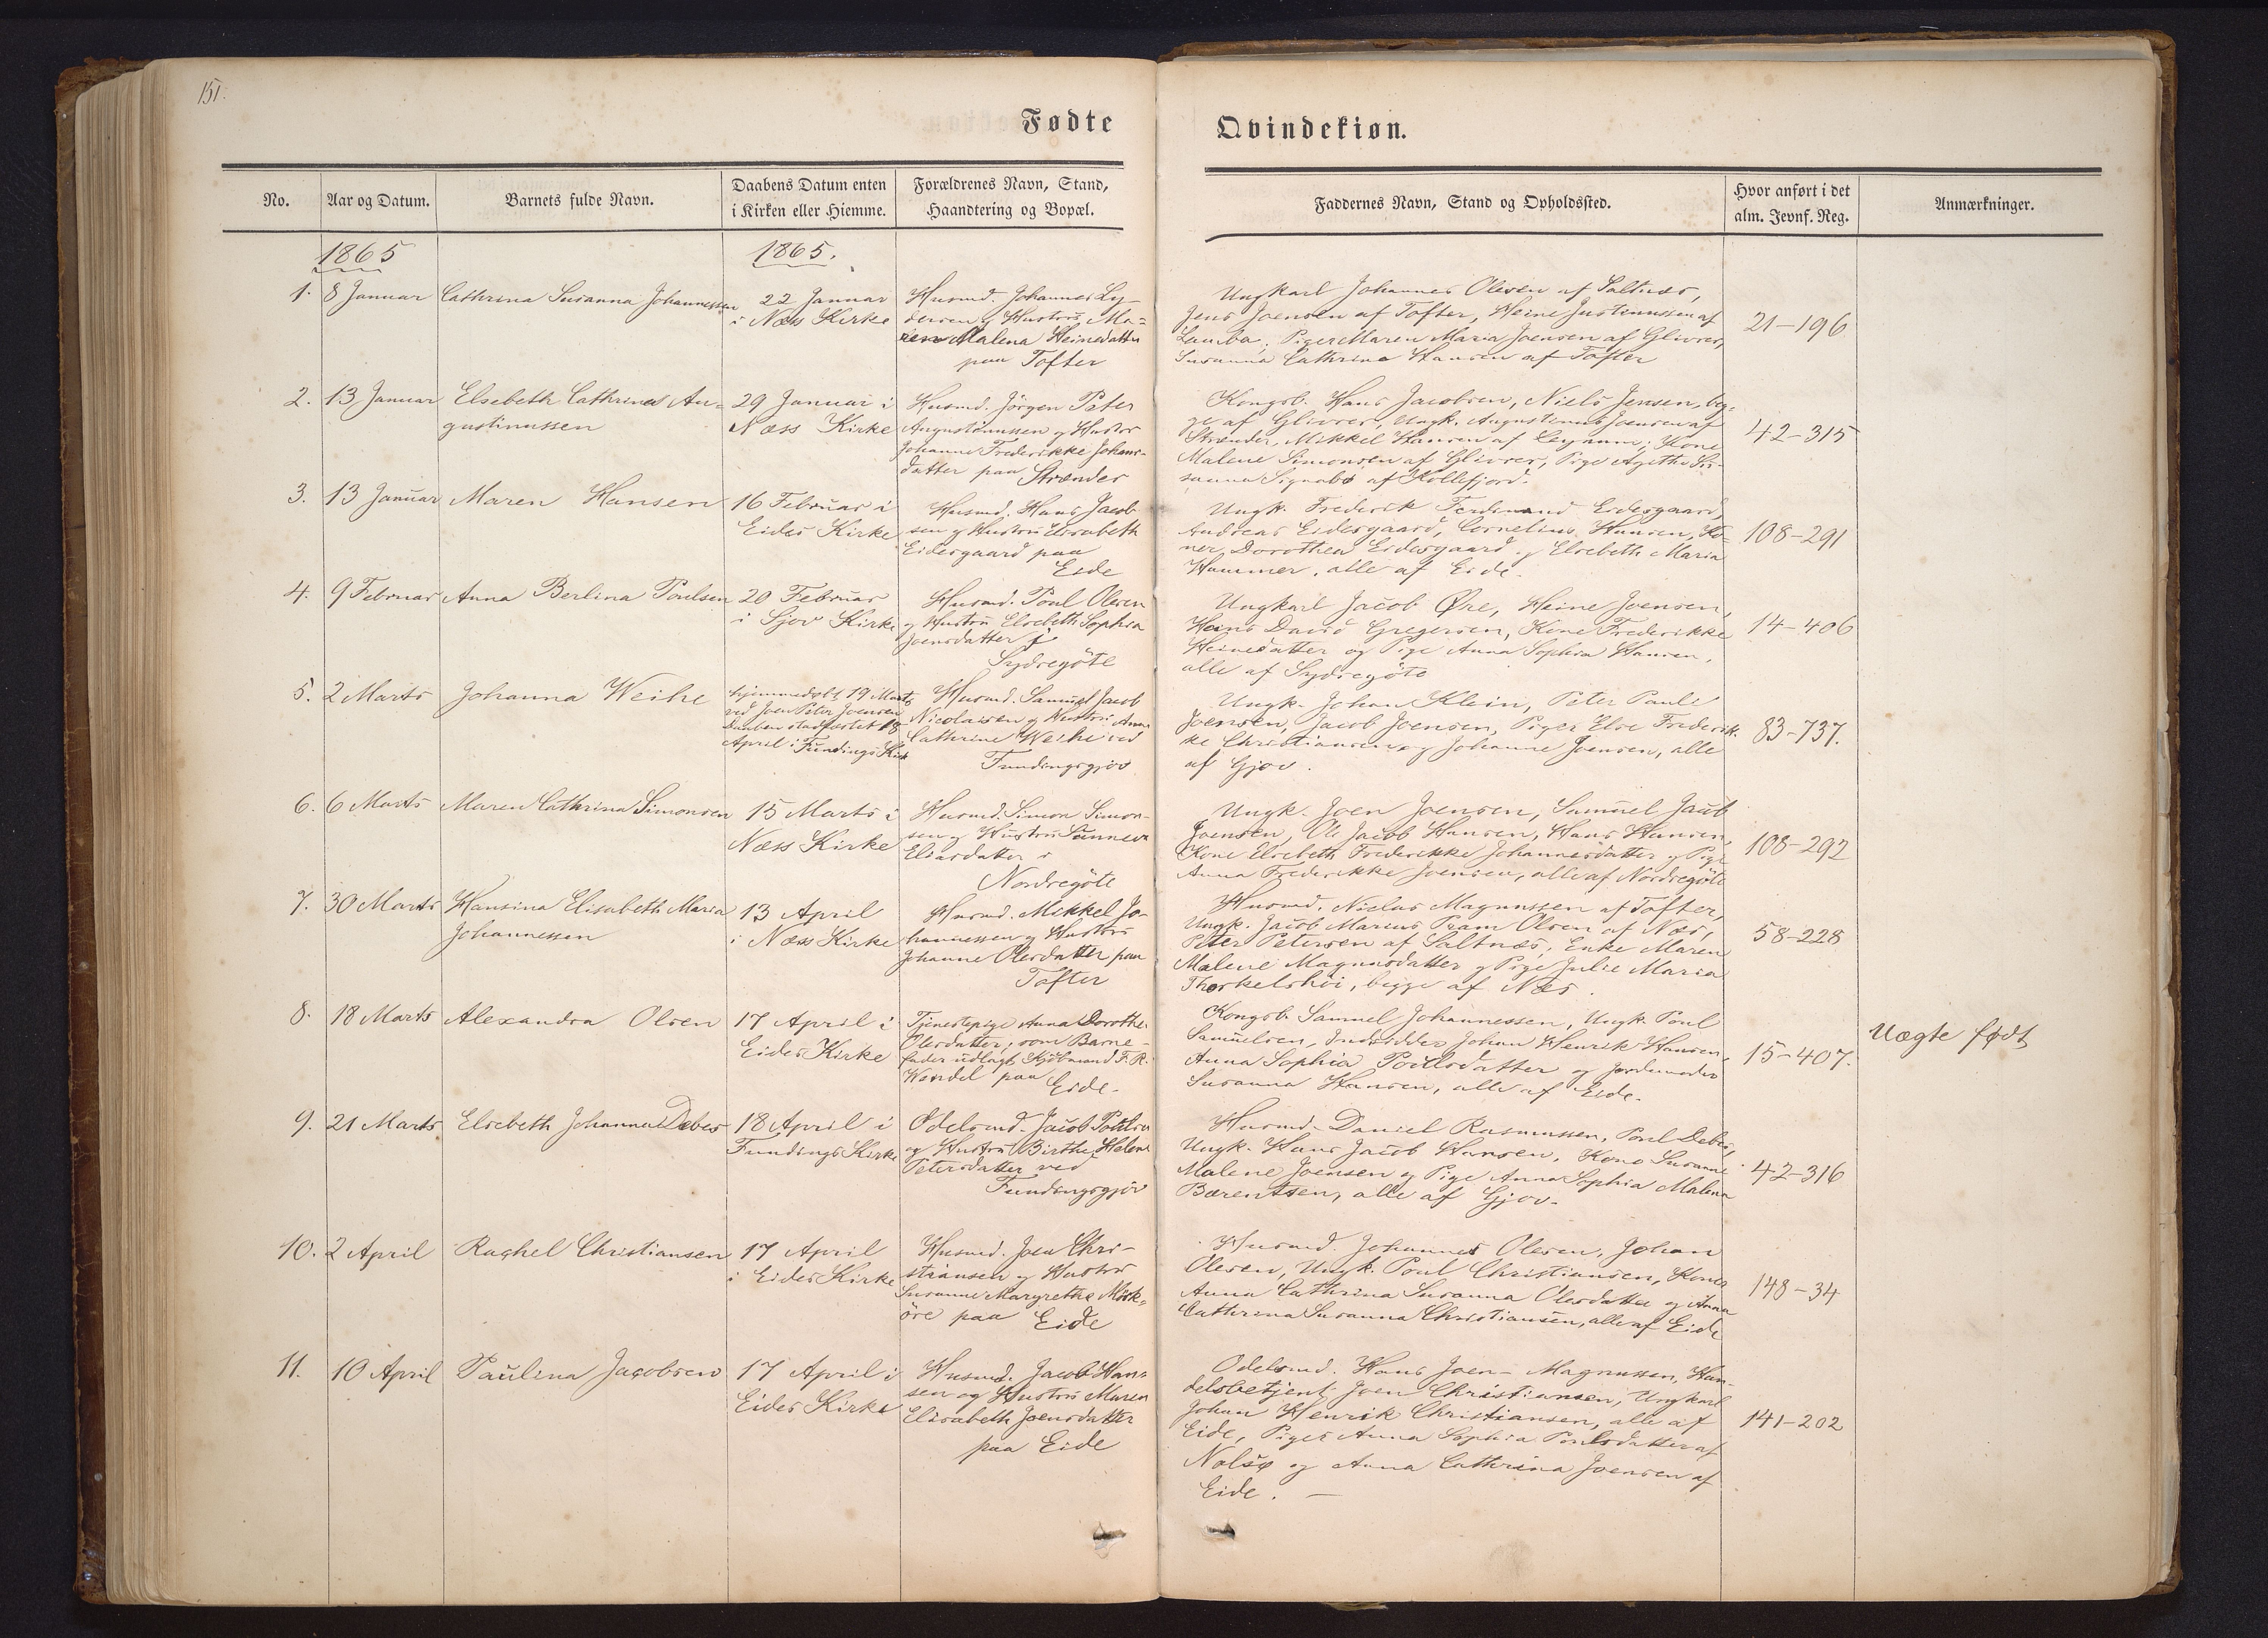 151.
Fødte
Qvindekiøn.
No.
Aar og Datum.
Barnets fulde Navn.
Daabens Datum enten
i Kirken eller Hiemme.
Forældrenes Navn, Stand,
Haandtering og Bopæl.
Faddernes Navn, Stand og Opholdssted.
Hvor anført i det
alm. Jevnf. Reg.
Anmærkninger.
1865
1865.
1.
8 Januar
Cathrina Susanna Johannessen
22 Januar
i Næss Kirke
Husmd. Johannes Ly-
dersen og Hustrü Ma=
Malena Heinesdatter
paa Tofter
Ungkarl Johannes Olesen af Saltnæs,
Jens Joensen af Tofter, Heine Justinussen af
Lamba, Piger Maren Maria Joensen af Glivrer,
Susanna Cathrina Hansen af Tofter
21-196
2.
13 Januar
Elsebeth Cathrina Au=
gustinussen
29 Januar i
Næss Kirke
Husmd. Jörgen Peter
Augustinussen og Hustrü
Johanne Frederikke Johans-
datter paa Strænder
Kongsb. Hans Jacobsen, Niels Jensen, beg-
ge af Glivrer, Ungk. Augustinus Joensen af
Strænder, Mikkel Hansen af; Kone
Malene Simonsen af Glivrer, Pige Agethe Su-
sanna Signabö af Kollefjord.
42-315
3.
13 Januar
Maren Hansen
16 Februar i
Eides Kirke
Husmd. Hans Jacob
sen og Hustrü Elisabeth
Eidesgaard paa
Eide
Ungk. Frederik Ferdinand Eidesgaard,
Andreas Eidesgaard, Cornelius Hansen, Ko-
ner Dorothea Eidesgaard og Elsebeth Maria
Hammer, alle af Eide.
108-291
4.
9 Februar
Anna Berlina Poulsen
20 Februar
i Gjov Kirke
Husmd. Poul Olesen
og Hustrü Elsebeth Sophia
Joensdatter i
Sydregöte
Ungkarl Jacob Øre, Heine Joensen,
Hans David Gregersen, Kone Frederikke
Heinesdatter og Pige Anna Sophia Hansen,
alle af Sydregöte
14-406
5.
2 Marts
Johanna Weihe
hjemmedøbt 19 Marts
ved Joen Peter Joensen
Daaben stadfæstet 18
April i Fundings Kirk
Husmd. Samuel Jacob
Nicolaisen og Hustrü Anna
Cathrine Weihe ved
Fundingsgjov
Ungk. Johan Klein, Peter Paule
Joensen, Jacob Joensen, Piger Else Frederik-
ke Christiansen og Johanne Joensen, alle
af Gjov.
83-737.
6.
6 Marts
Maren Cathrina Simonsen
15 Marts i
Næss Kirke
Husmd. Simon Simon-
sen og Hustrü Sünneva
Eliasdatter i
Nordregöte
Ungk. Joen Joensen, Samuel Jacob
Joensen, Ole Jacob Hansen, Hans Hansen,
Kone Elsebeth Frederikke Johannesdatter og Pige
Anna Frederikke Joensen, alle af Nordregöte
108-292
7.
30 Marts
Hansina Elisabeth Maria
Johannessen
13 April
i Næss Kirke
Husmd. Mikkel Jo-
hannessen og Hustrü
Johanne Olesdatter paa
Tofter
Husmd. Niclas Magnussen af Tofter,
Ungk. Jacob Marius Pram Olsen af Næs,
Peter Petersen af Saltnæs, Enke Maren
Malene Magnusdatter og Pige Julie Maria
Thorkelshöi, begge af Næs.
58-228
8.
18 Marts
Alexandra Olsen
17 April i
Eides Kirke
Tjenestepige Anna Dorothea
Olesdatter, som Barne-
fader udlagt Kjöbmand F. R.
Wendel paa Eide.
Kongsb. Samuel Johannessen, Ungk. Poul
Samuelsen, Indsidder Johan Henrik Hansen,
Anna Sophia Poulsdatter og Jordemoder
Susanna Hansen, alle af Eide.
15-407.
Uægte født
9.
21 Marts
Elsebeth Johanna Debes
18 April i
Fundings Kirke
Odelsmd. Jacob Poulsen
og Hustrü Birthe Helene
Petersdatter ved
Fundingsgjöv
Husmd. Daniel Rasmussen, Poul Debes,
Ungk. Hans Jacob Hansen, Kone Susanne
Malene Joensen og Pige Anna Sophia Malena
Bærentsen, alle af Gjov.
42-316
10.
2 April
Raghel Christiansen
17 April
i Eides Kirke
Husmd. Joen Chri-
stiansen og Hustrü
Susanne Margrethe Mörk-
öre paa Eide
Husmd. Johannes Olesen, Johan
Olesen, Ungk. Poul Christiansen, Koner
Anna Cathrina Susanna Olesdatter og Anna
Cathrina Susanna Christiansen, alle af Eide
148-34
11.
10 April
Paülina Jacobsen
17 April i
Eides Kirke
Husmd. Jacob Han-
sen og Hustrü Maren
Elisabeth Joensdatter
paa Eide
Odelsmd. Hans Joen- Magnussen, Han-
delsbetjent Joen Christiansen, Ungkarl
Johan Henrik Christiansen, alle af
Eide, Piger Anna Sophia Poulsdatter af
Nolsö og Anna Cathrina Joensen af
Eide. —
141-202